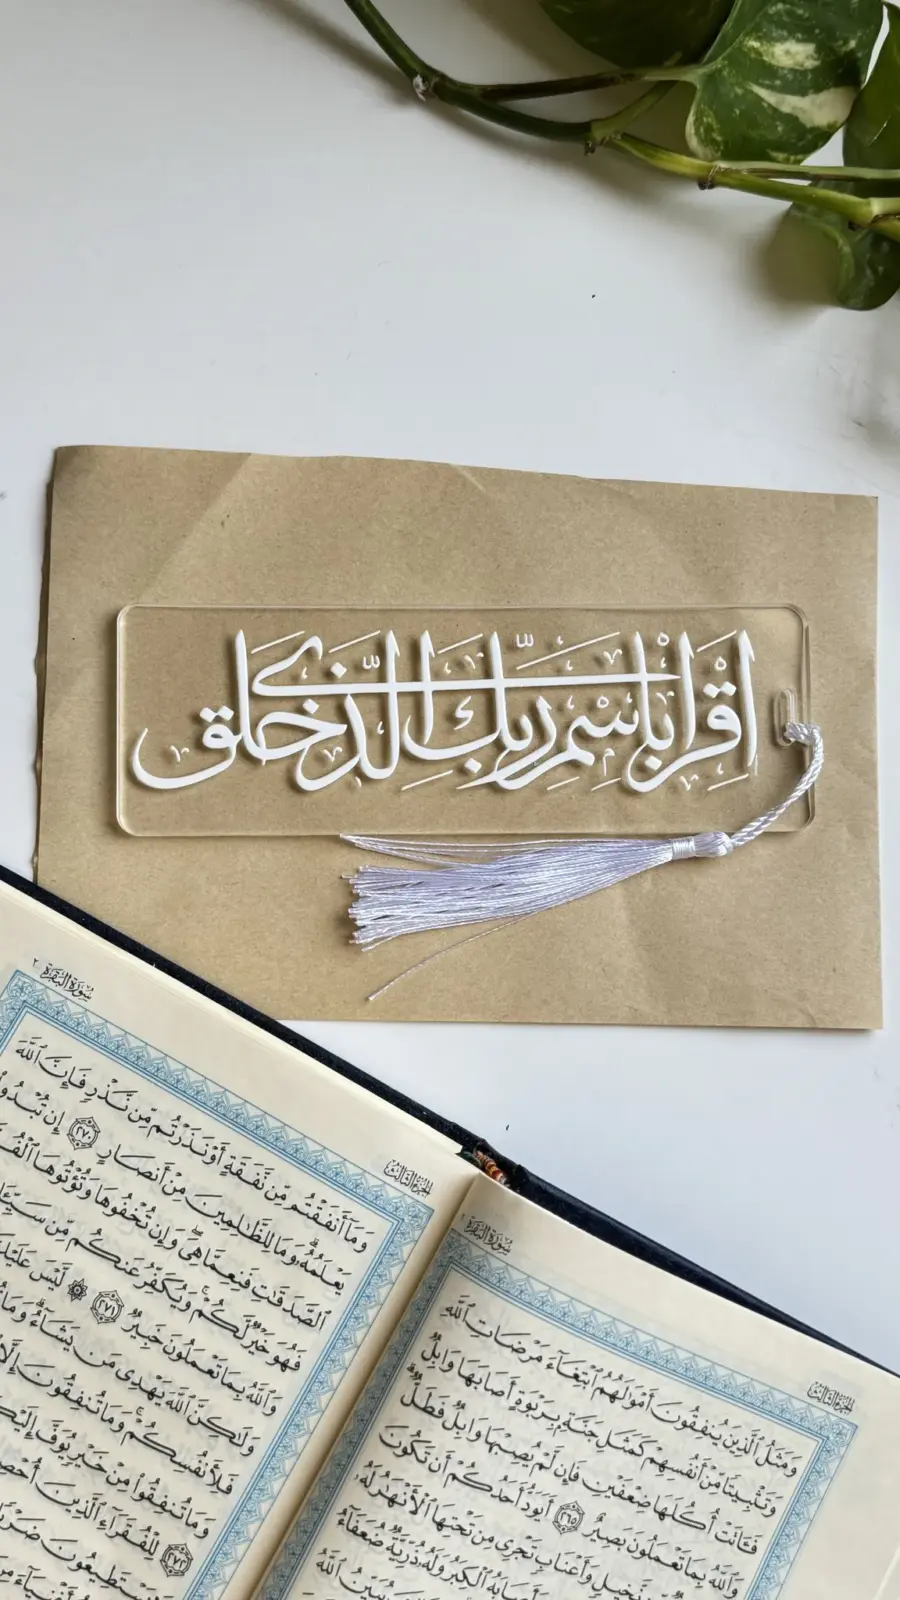 اقْرَأْ بِاسْمِ رَبِّكَ الَّذِي خَلَقَ
سُورَةُ البَقَرَةِ
الجزء الثالث
وَمَآ أَنفَقْتُم مِّن نَّفَقَةٍ أَوْ نَذَرْتُم مِّن نَّذْرٍ فَإِنَّ ٱللَّهَ
يَعْلَمُهُۥ وَمَا لِلظَّٰلِمِينَ مِنْ أَنصَارٍ ٢٧٠ إِن تُبْدُوا
ٱلصَّدَقَٰتِ فَنِعِمَّا هِىَ وَإِن تُخْفُوهَا وَتُؤْتُوهَا
فَهُوَ خَيْرٌ لَّكُمْ وَيُكَفِّرُ عَنكُم مِّن
وَٱللَّهُ بِمَا تَعْمَلُونَ خَبِيرٌ ٢٧١ لَّيْسَ عَلَيْكَ
وَلَٰكِنَّ ٱللَّهَ يَهْدِى مَن يَشَآءُ وَمَا
فَلِأَنفُسِكُمْ وَمَا تُنفِقُونَ إِلَّا
وَمَا تُنفِقُوا۟ مِنْ خَيْرٍ يُوَفَّ
٢٧٢ لِلْفُقَرَآءِ ٱلَّذِينَ
يَسْتَطِيعُونَ
سُورَةُ البَقَرَةِ
الجزء الثالث
وَمَثَلُ ٱلَّذِينَ يُنفِقُونَ أَمْوَٰلَهُمُ ٱبْتِغَآءَ مَرْضَاتِ ٱللَّهِ
وَتَثْبِيتًا مِّنْ أَنفُسِهِمْ كَمَثَلِ جَنَّةٍۭ بِرَبْوَةٍ أَصَابَهَا وَابِلٌ
فَـَٔاتَتْ أُكُلَهَا ضِعْفَيْنِ فَإِن لَّمْ يُصِبْهَا وَابِلٌ فَطَلٌّ
وَٱللَّهُ بِمَا تَعْمَلُونَ بَصِيرٌ ٢٦٥ أَيَوَدُّ أَحَدُكُمْ أَن تَكُونَ
نَّخِيلٍ وَأَعْنَابٍ تَجْرِى مِن تَحْتِهَا ٱلْأَنْهَٰرُ لَهُۥ
وَأَصَابَهُ ٱلْكِبَرُ وَلَهُۥ ذُرِّيَّةٌ ضُعَفَآءُ
يُبَيِّنُ ٱللَّهُ